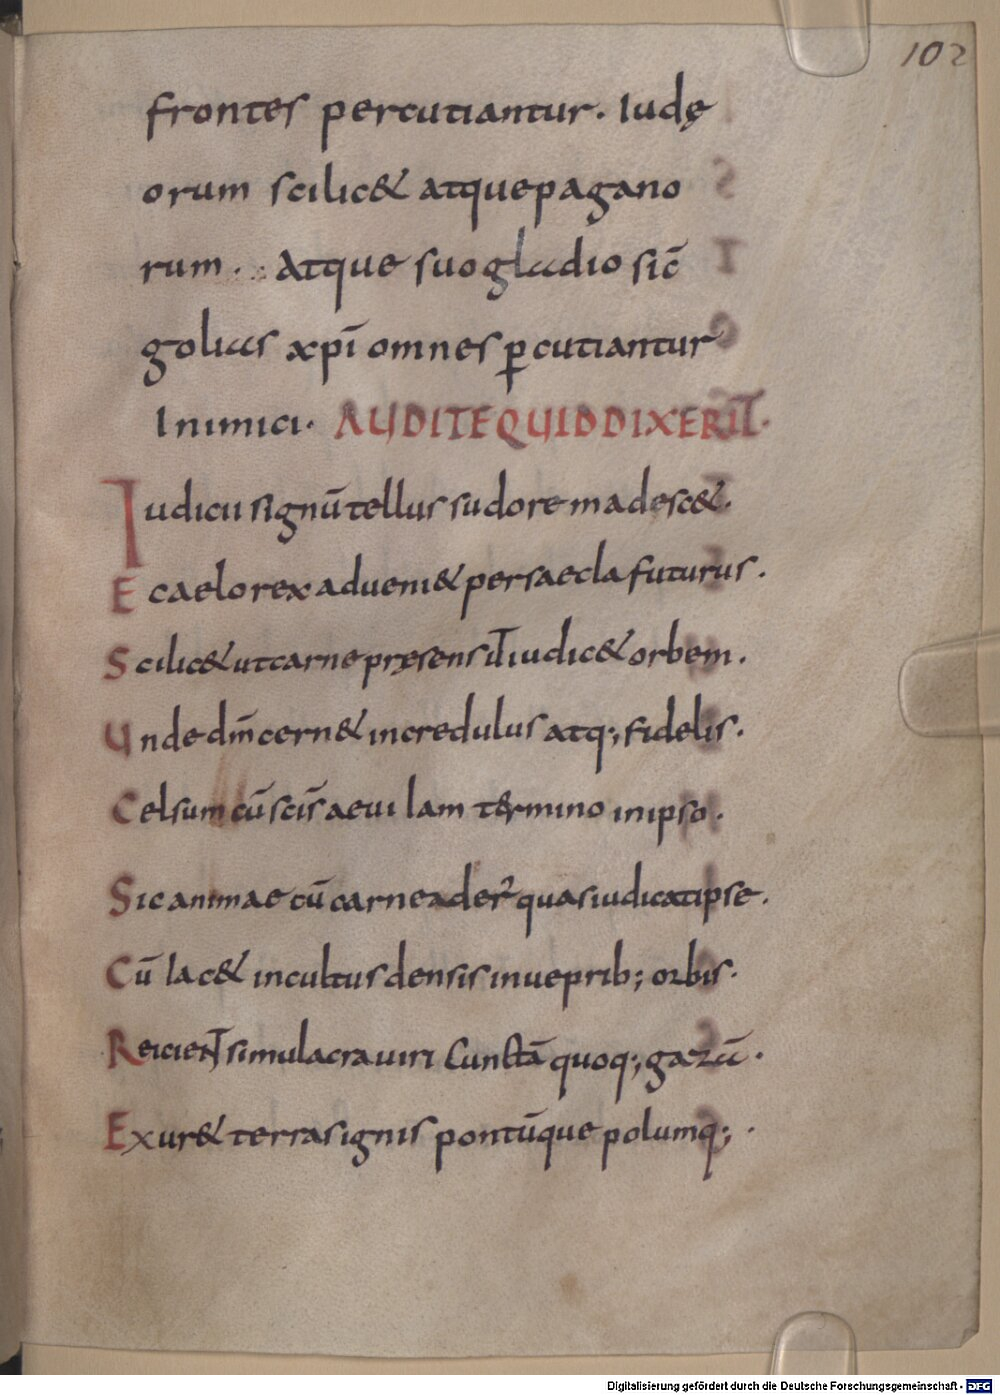 102
frontes percutiantur. Iudę
orum scilic& atque pagano
rum. Atque suo gladio sic̄
golias xp̄i omnes ꝑcutiantur
Inimici. AUDITE QUID DIXERIT.
Iudicii signū tellus sudore madesc&.
E caelo rex adueni& per saecla futurus.
Scilic& ut carne pręsens ut iudic& orbem.
Unde dm̄ cern& incredulus atq; fidelis.
Celsum cū scīs aeui lam termino in ipso.
Sic animae cū carne ader̄ quas iudicat ipse.
Cū lac& incultus densis inueprib; orbis.
Reicient simulacra uiri cunctā quoq; gazā.
Exur& terras ignis pontūque polumq;.
Digitalisierung gefördert durch die Deutsche Forschungsgemeinschaft - DFG